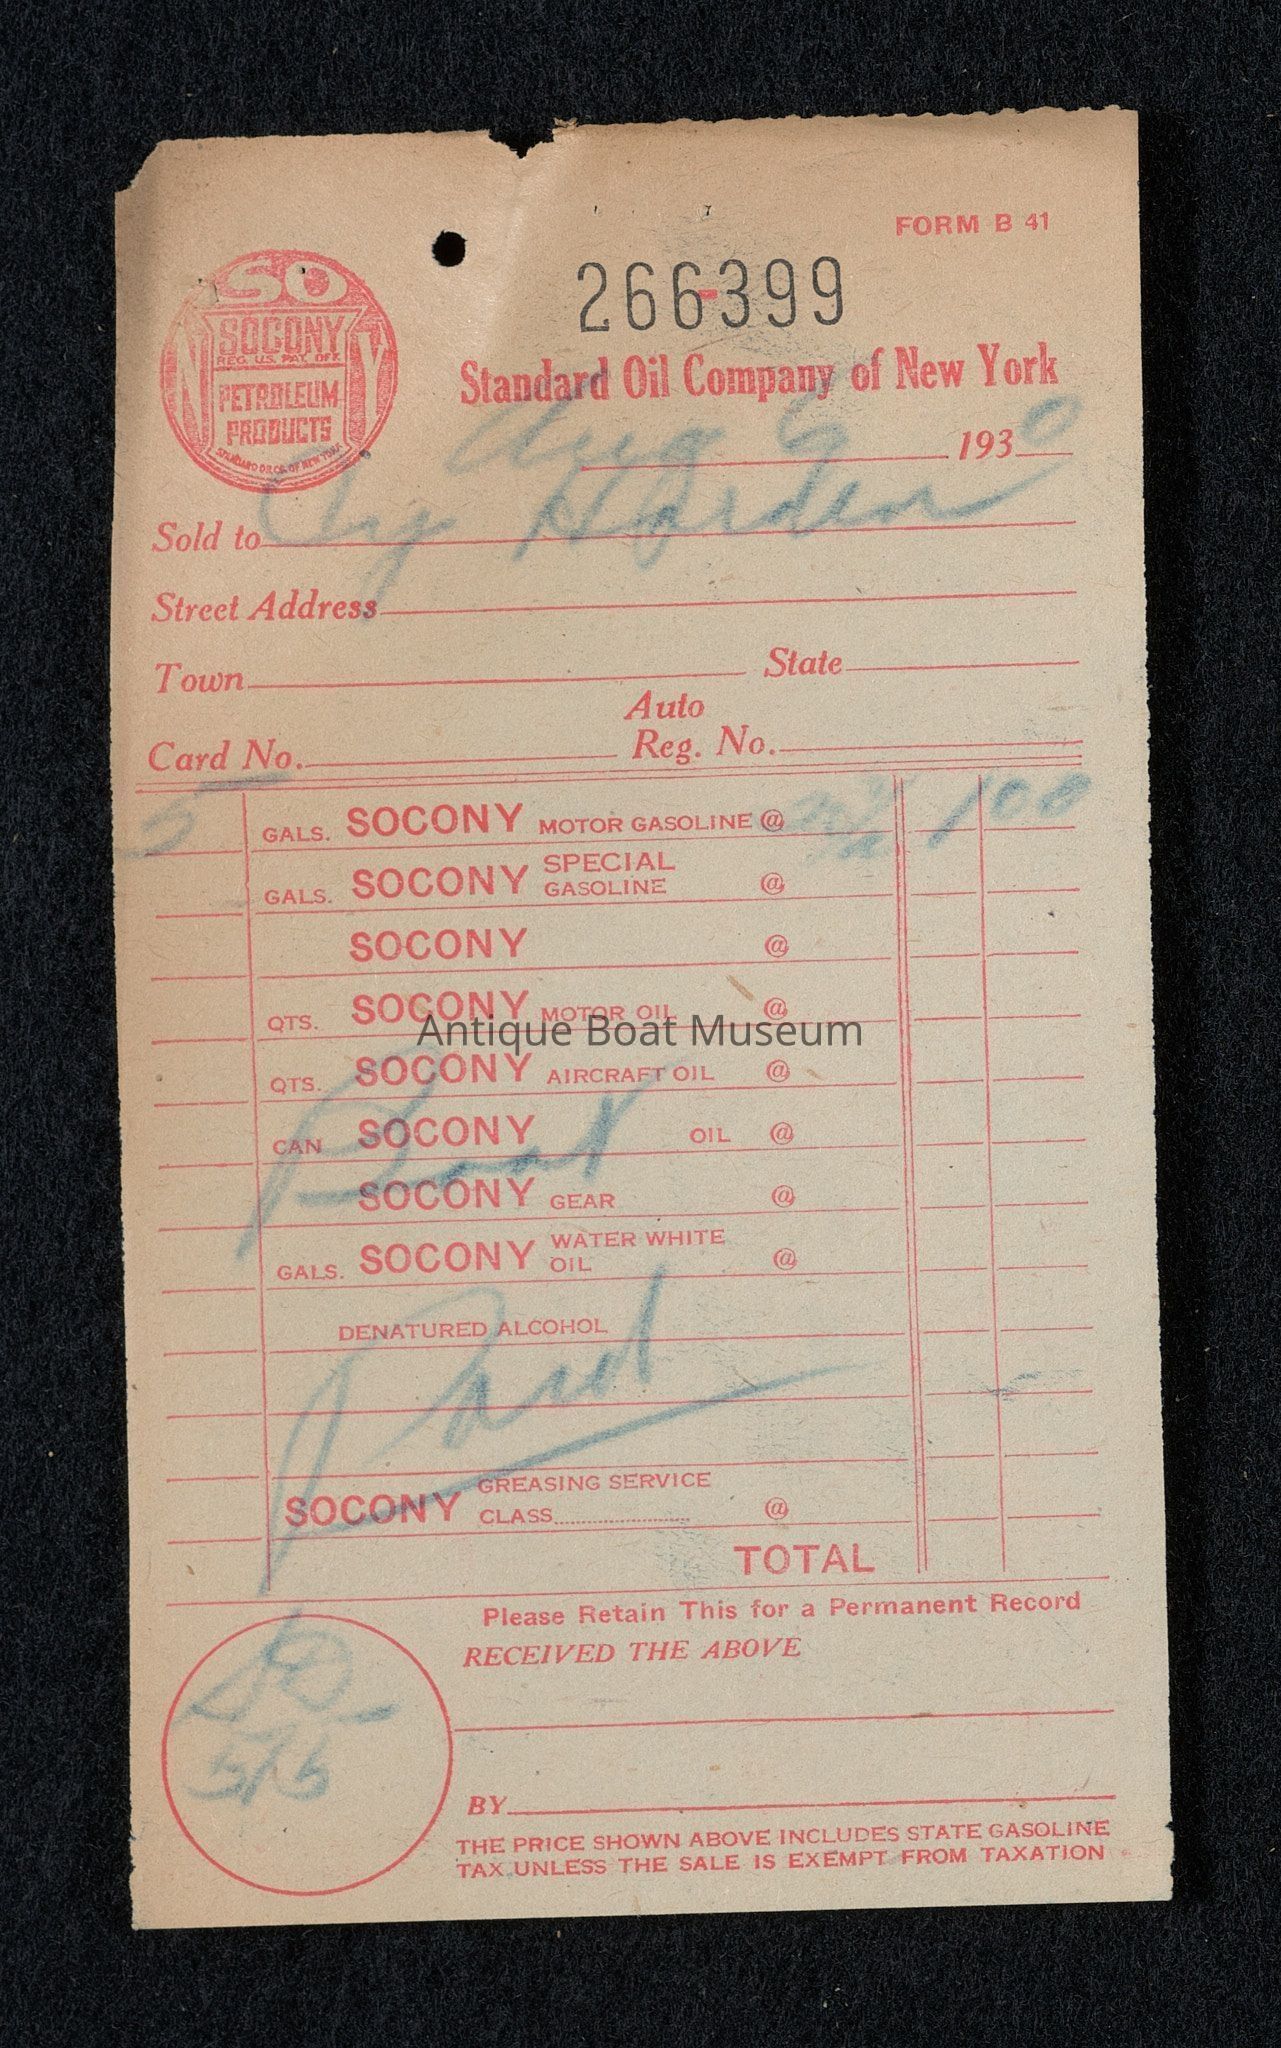 FORM B 41
266-399
SO
NY
SOCONY
REG. U.S. PAT. OFF.
PETROLEUM
PRODUCTS
STANDARD OIL CO. OF NEW YORK
Standard Oil Company of New York
Aug 9 1930
Sold to Cy Harden
Street Address
Town State
Auto
Card No. Reg. No.
5 GALS. SOCONY MOTOR GASOLINE @ 1 00
GALS. SOCONY SPECIAL GASOLINE @
SOCONY @
QTS. SOCONY MOTOR OIL @
Antique Boat Museum
QTS. SOCONY AIRCRAFT OIL @
CAN SOCONY OIL @
Boat
SOCONY GEAR @
GALS. SOCONY WATER WHITE OIL @
DENATURED ALCOHOL
Paid
SOCONY GREASING SERVICE CLASS @
TOTAL
Please Retain This for a Permanent Record
RECEIVED THE ABOVE
BY
THE PRICE SHOWN ABOVE INCLUDES STATE GASOLINE
TAX UNLESS THE SALE IS EXEMPT FROM TAXATION